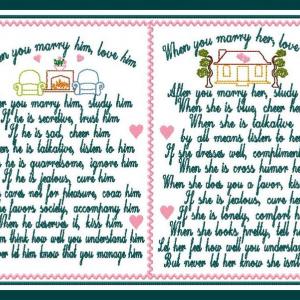 When you marry him, love him
After you marry him, study him
If he is secretive, trust him
If he is sad, cheer him
When he is talkative, listen to him
he is quarrelsome, ignore him
If he is jealous, cure him
cares not for pleasure, coax him
favors society, accompany him
When he deserves it, kiss him
him think how well you understand him
let him know that you manage him
When you marry her, love her
After you marry her, study
When she is blue, cheer her
When she is talkative
by all means listen to her
If she dresses well, compliment
When she is cross humor he
When she does you a favor, kis
If she is jealous, cure her
If she is lonely, comfort h
When she looks pretty, tell he
Let her feel how well you understan
But never let her know she isn't